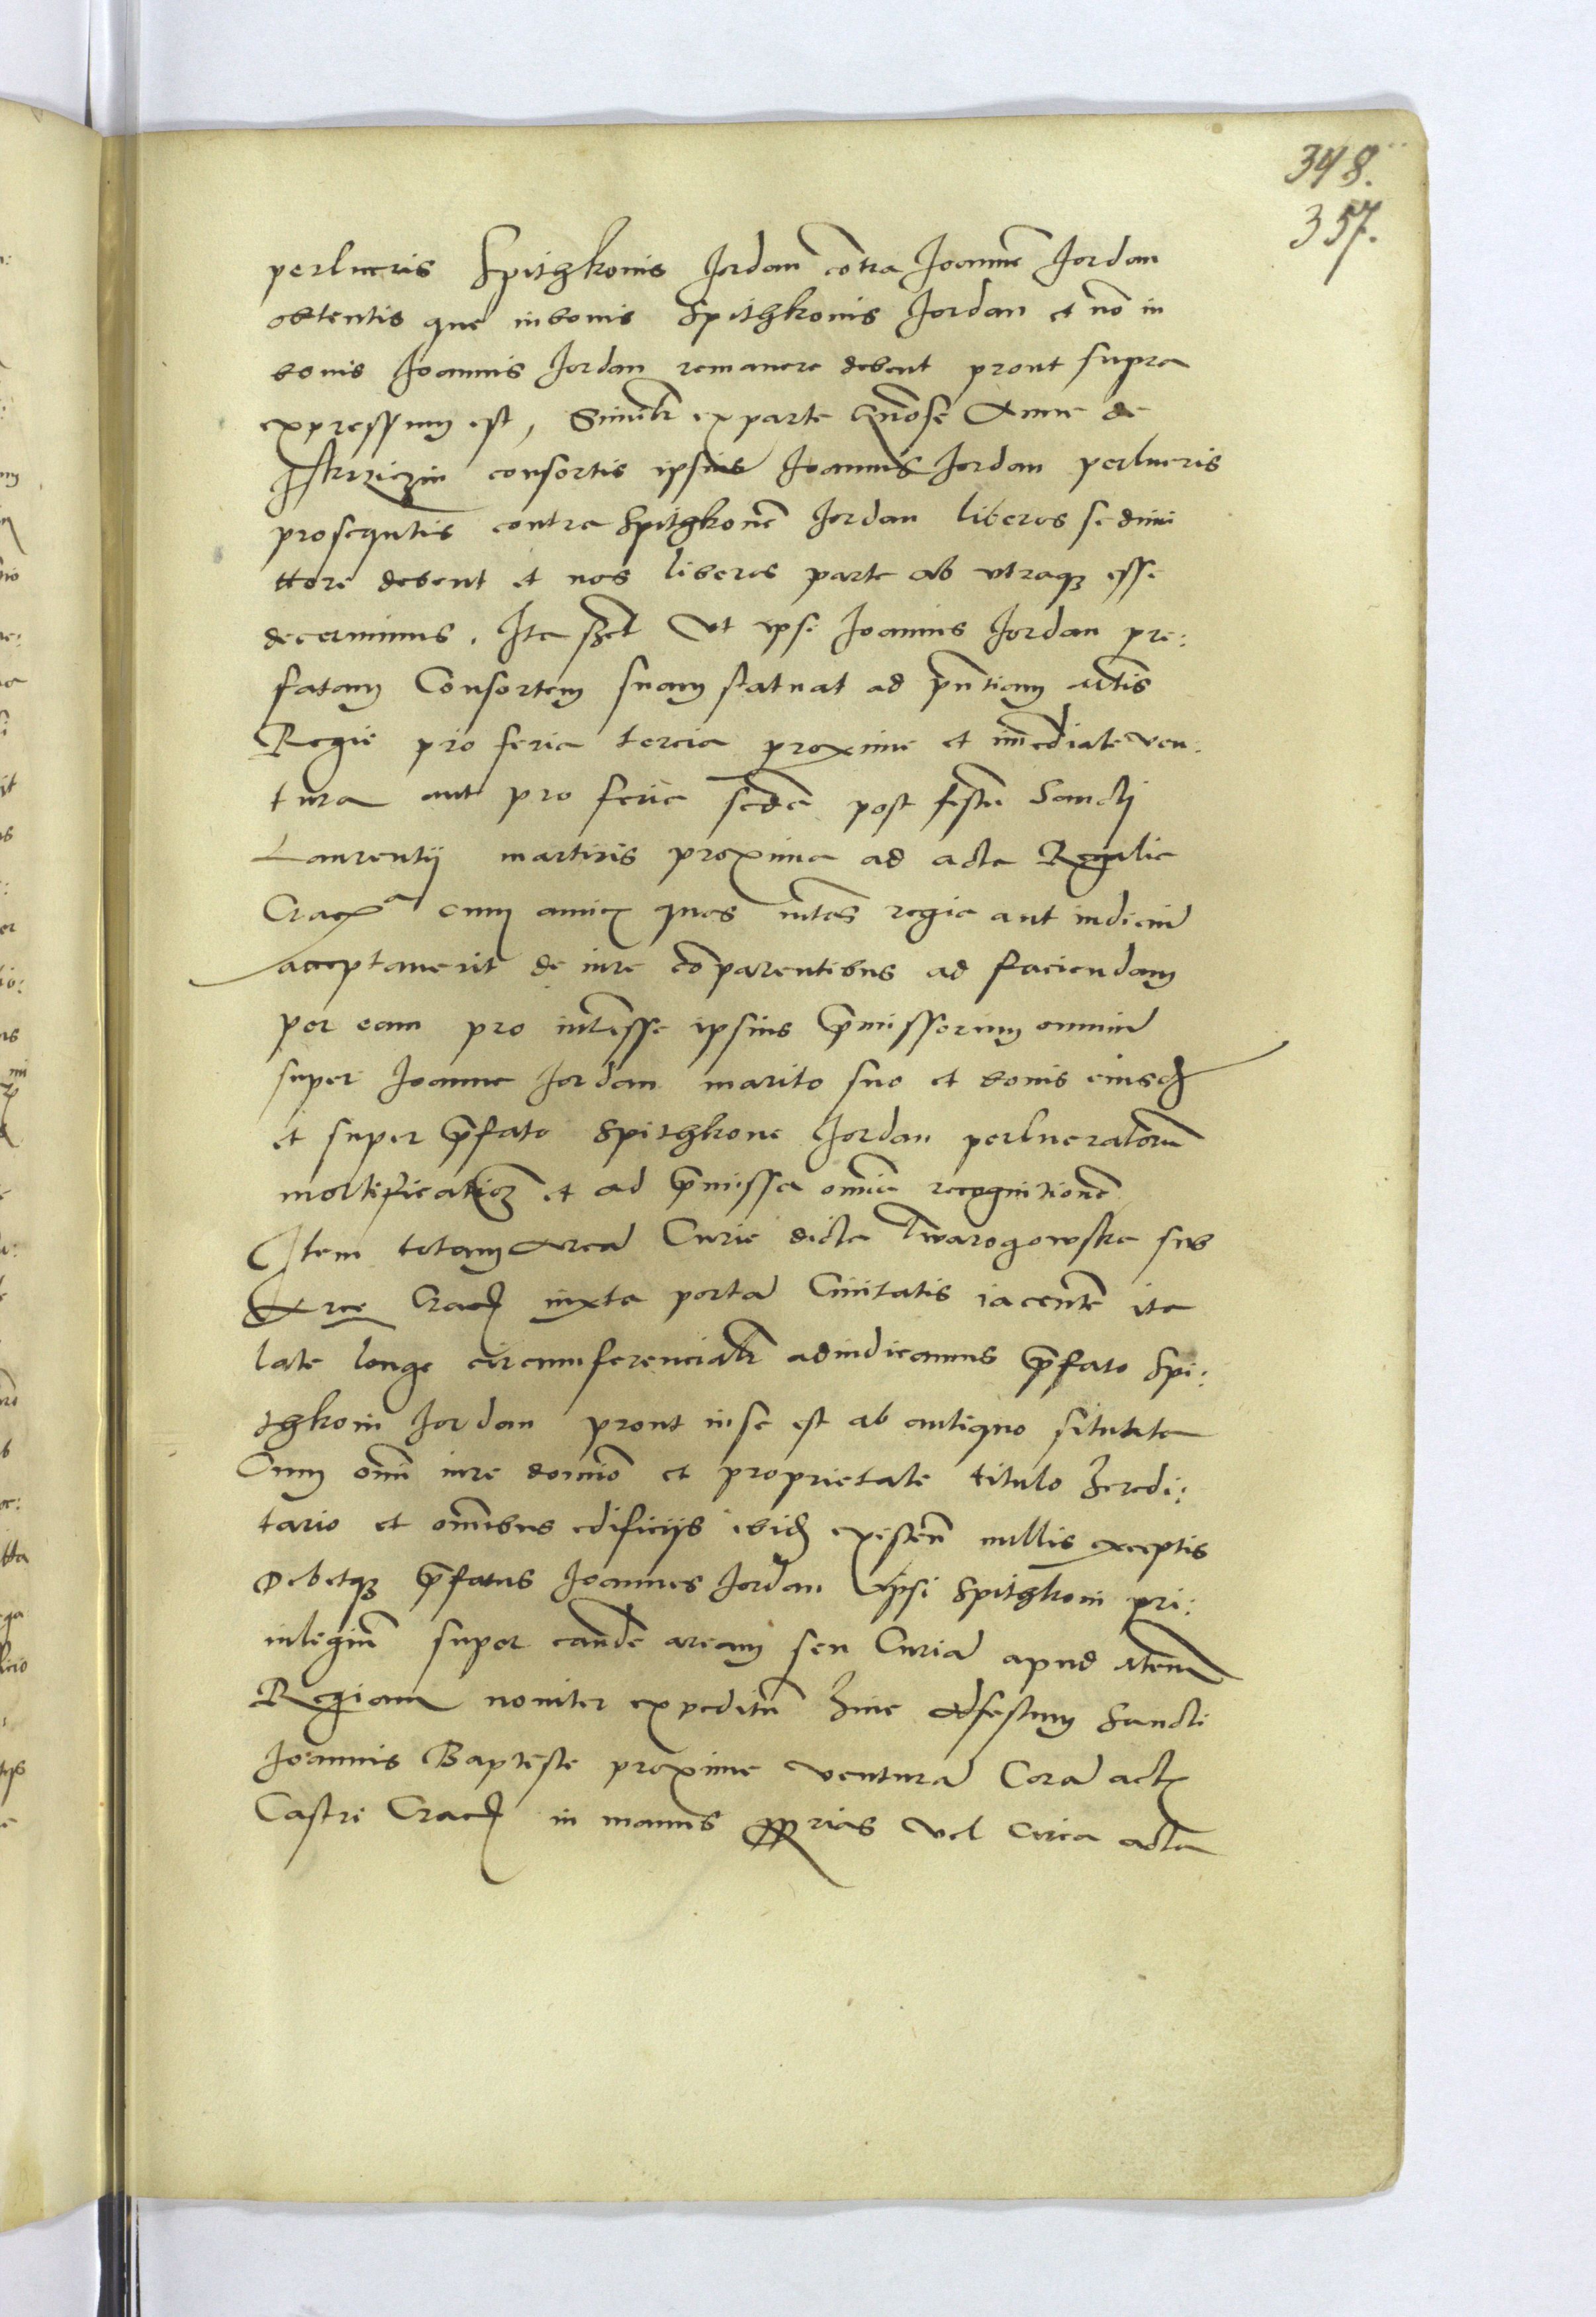 348.
357.
perlucris Spithkonis Jordan contra Joannē Jordan
obtentis que in bonis Spithkonis Jordan et nō in
bonis Joannis Jordan remanere debent prout supra
expressum est, Similr ex parte Gnose Anne de
consortis ipsius Joannis Jordan perlucris
prosequtis contra Spithkonē Jordan liberos se dimi
ttere debent et nos liberos parte ab utraq3 esse
decernimus. Ita Ut ipse Joannis Jordan pre:
fatam Consortem suam statuat ad pn̄tiam Mtis
Regie pro feria tercia proxime et im̄ediate ven:
tura aut pro feria secda post festū Sancti
Laurentij martiris proxima ad acta Regalia
Crac cum amicis quos mtas regia aut iudiciū
acceptauerit de iure cōparentibus ad faciendam
per eam pro interesse ipsius p̄missorum omniū
super Joanne Jordan marito suo et bonis eiusd
et super p̄fato Spithkone Jordan perlucratorū
mortificationē et ad p̄missa om̄ia recognitionē
Item totam Areā Curie dicta Twarogowska sub
Arce Crac iuxta portā Ciuitatis iacentē ita
late longe circumferencialr adiudicamus p̄fato Spi:
thkoni Jordan prout in se est ab antiquo situata
Cum om̄i iure domīo et proprietate titulo heredi:
tario et om̄ibus edificijs ibid existēn nullis exceptis
Debetq3 p̄fatus Joannes Jordan ipsi Spithkoni pri:
uilegiū super eandē aream seu Curiā apud Mtem
Regiam nouiter expeditū hinc ad festum Sancti
Joannis Baptiste proxime venturū Corā actis
Castri Crac in manus pprias vel circa acta